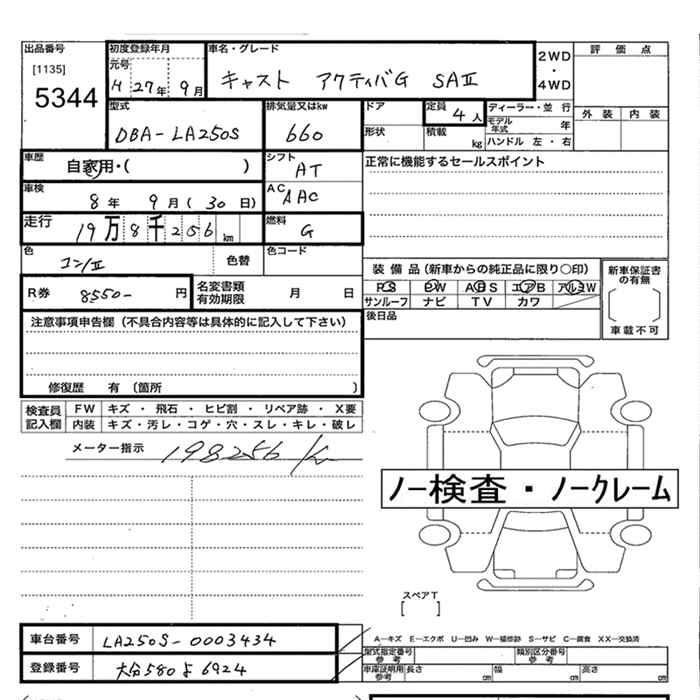 出品番号 初度登録年月 車名・グレード
[1135] 元号
5344 H 27年 9月 キャスト アクティバG SAⅡ 2WD・4WD 評価点
型式 排気量又はkw ドア 定員 4人 ディーラー・並行 外装 内装
DBA-LA250S 660 形状 積載 kg モデル年式 年
ハンドル 左・右
車歴 自家用・( ) シフト AT 正常に機能するセールスポイント
車検 8年 9月(30日) AC AAC
走行 19万8千256km 燃料 G
色 コン/Ⅱ 色替 色コード
装備品(新車からの純正品に限り○印) 新車保証書の有無
R券 8550- 円 名変書類有効期限 月 日 PS PW ABS エアB アルミW
サンルーフ ナビ TV カワ
[ ] 車載不可
注意事項申告欄(不具合内容等は具体的に記入して下さい) 後日品
修復歴 有(箇所 )
検査員記入欄 FW キズ・飛石・ヒビ割・リペア跡・X要
内装 キズ・汚レ・コゲ・穴・スレ・キレ・破レ
メーター指示 198256 km
ノー検査・ノークレーム
スペアT
[ ]
A-キズ E-エクボ U-凹み W-補修跡 S-サビ C-腐食 XX-交換済
車台番号 LA250S-0003434 型式指定番号参考 類別区分番号参考
登録番号 大分580よ6924 車庫証明用参考 長さ cm 幅 cm 高さ cm